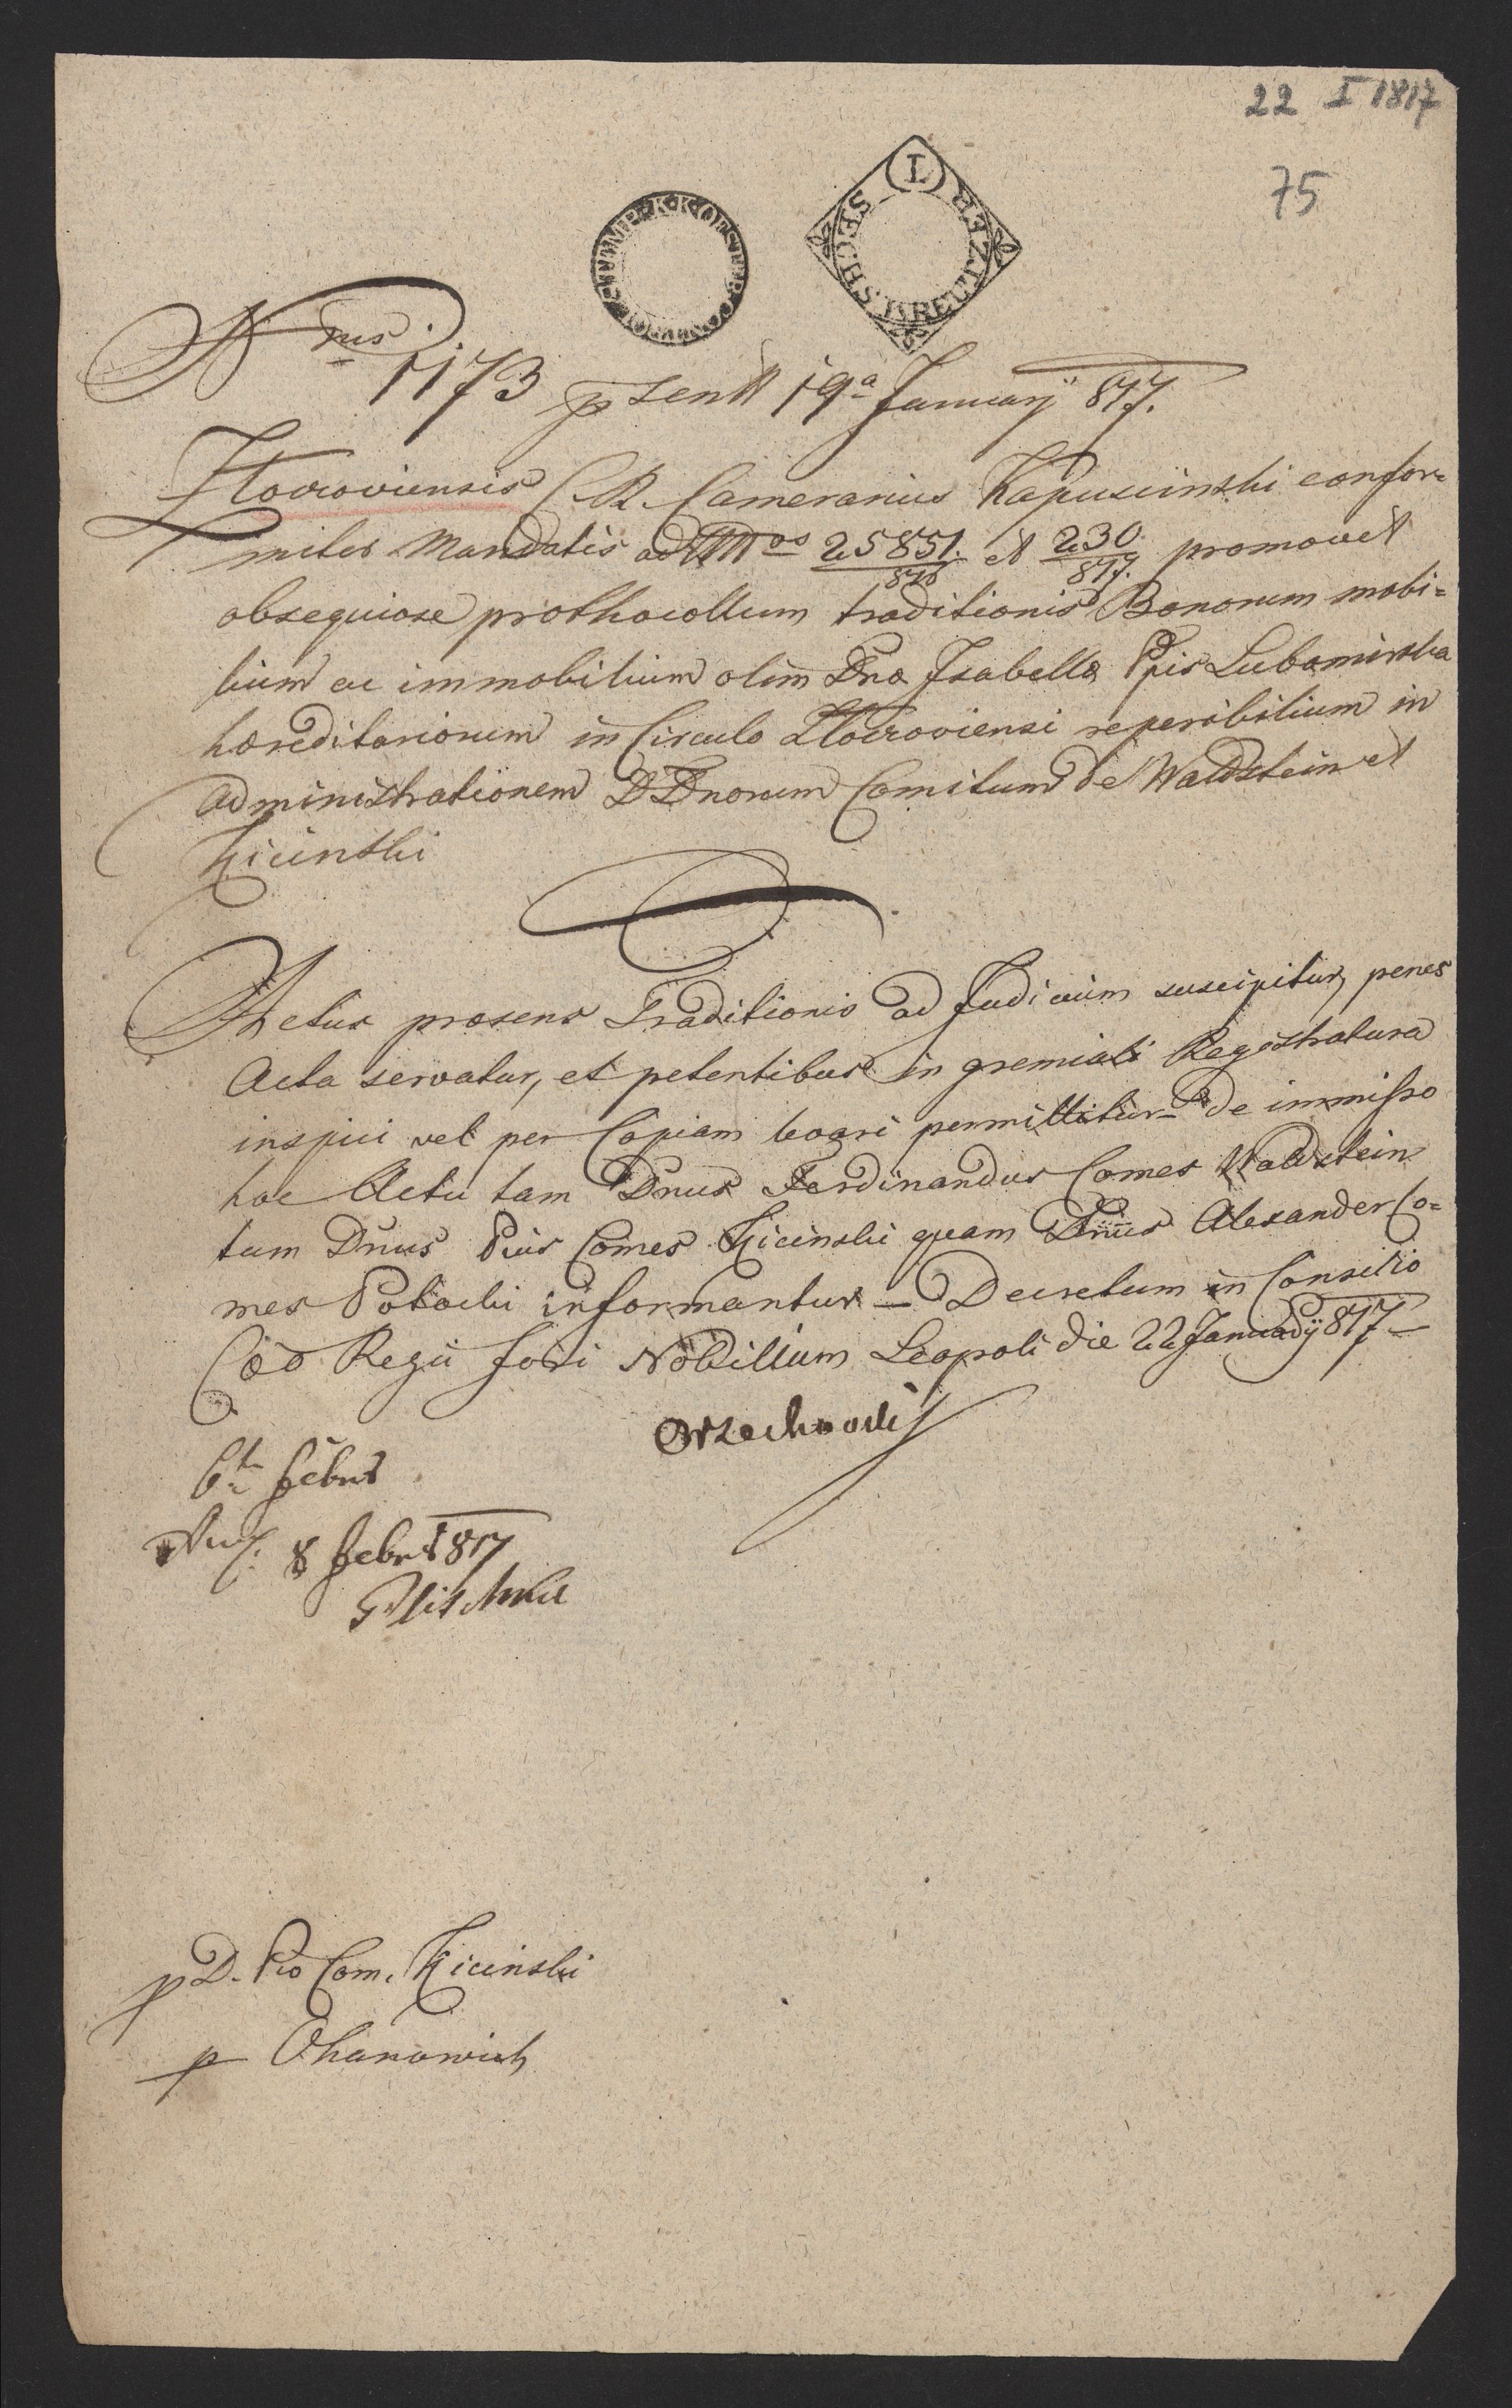 22 I 1817
75
L
SECHS KREUTZER
Nrus 1173 psentt 19a January 817.
Zloczoviensis C. R. Camerarius Kapuscinski confor=
miter Mandatis ad NNros 25851./816 et 230./817. promovet
obsequiose prothocollum traditionis Bonorum mobi=
lium ac immobilium olim Dna Isabella Ppis Lubomirska
hæreditariorum in Circulo Zloczoviensi reperibilium in
administrationem DDnorum Comitum de Waldstein et
Kicinski
Actus præsens Traditionis ad Judicium suscipitur, penes
Acta servatur, et petentibus in gremiali Registratura
inspici vel per Copiam levari permittitur – De immisso
hoc Actu tam Dnus Ferdinandus Comes Waldstein
tum Dnus Pius Comes Kicinski quam Dnus Alexander Co=
mes Potocki informantur – Decretum in Consilio
Cæo Regii fori Nobilium Leopoli die 22 January 817 –
Orzechowski
6t febr
8 febr 817
p D. Pio Com. Kicinski
p Ohanowich